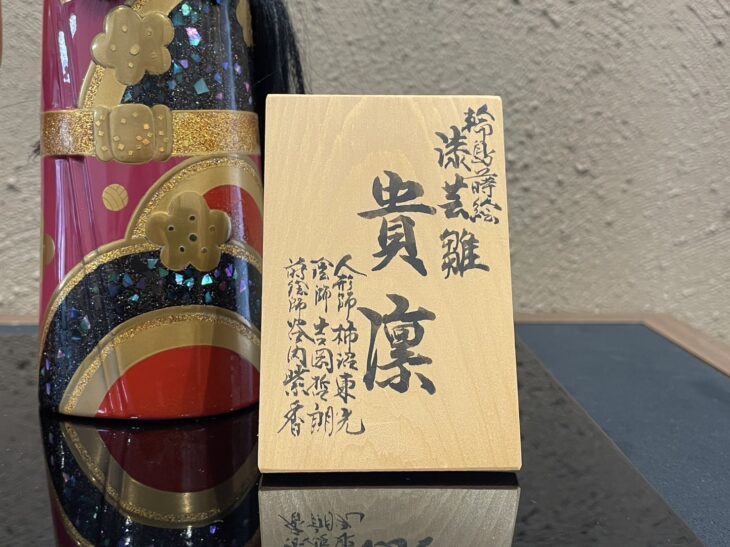 輪島蒔絵
漆芸雛
貴凛
人形師 柿沼東光
塗師 吉岡哲朗
蒔絵師 竹内紫香